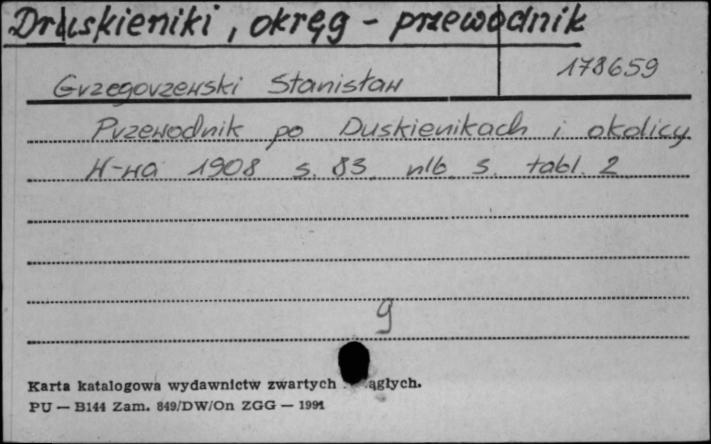 Druskieniki, okręg - przewodnik
178659
Grzegorzewski Stanisław
Przewodnik po Duskienikach i okolicy
W-wa 1908 s. 83, nlb. S. tabl. 2
g
Karta katalogowa wydawnictw zwartych ągłych.
PU — B144 Zam. 849/DW/On ZGG — 1991